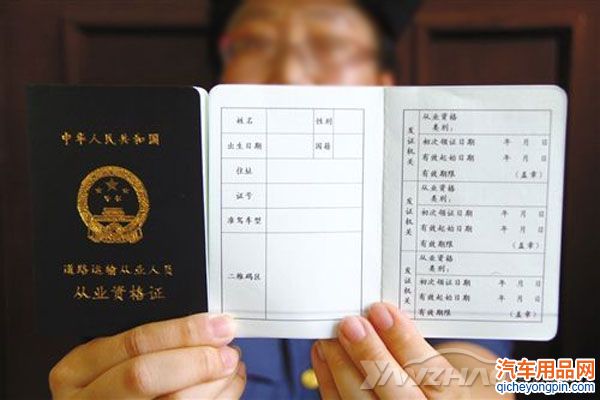 中华人民共和国
道路运输从业人员
从业资格证
姓名 性别
出生日期 国籍
住址
证号
准驾车型
二维码区
发证机关
从业资格
类别：
初次领证日期 年 月 日
有效起始日期 年 月 日
有效期限 （盖章）
发证机关
从业资格
类别：
初次领证日期 年 月 日
有效起始日期 年 月 日
有效期限 （盖章）
发证机关
从业资格
类别：
初次领证日期 年 月 日
有效起始日期 年 月 日
有效期限 （盖章）
汽车用品网
qicheyongpin.com